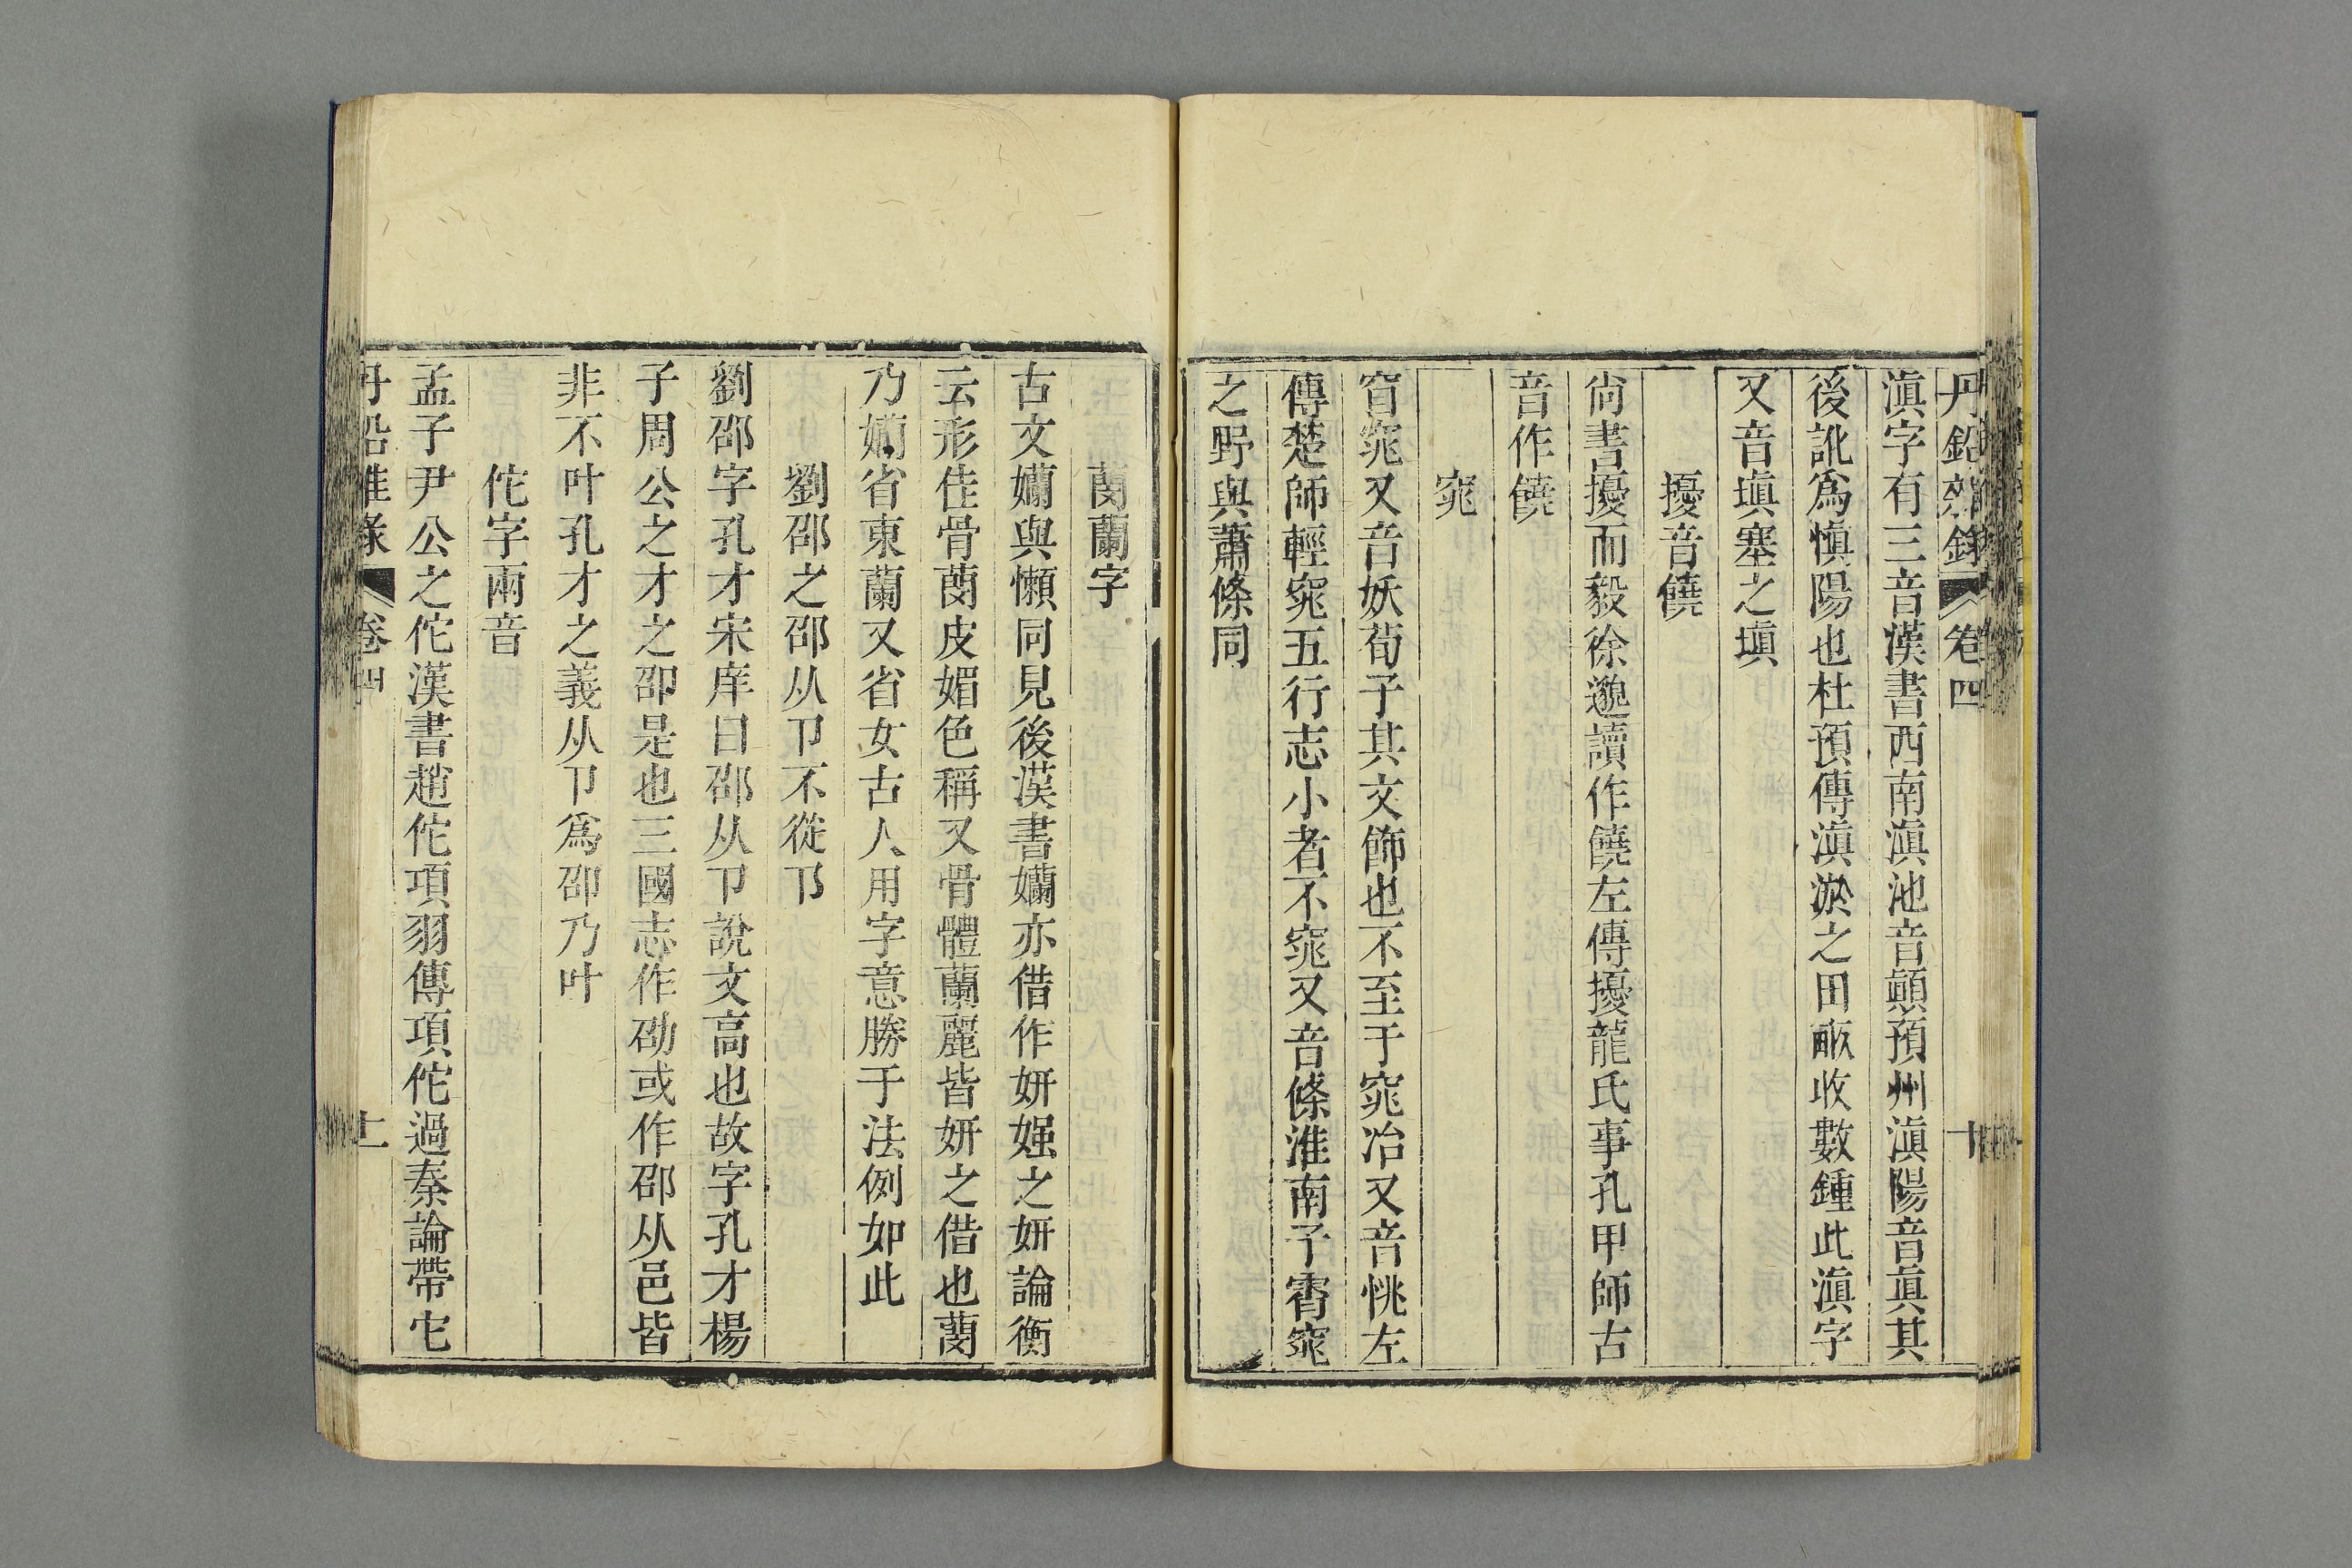 丹鉛雜錄 卷四 十
滇字有三音漢書西南滇池音顚預州滇陽音眞其
後訛爲愼陽也杜預傳滇淤之田畝收數鍾此滇字
又音塡塞之塡
擾音饒
尙書擾而毅徐邈讀作饒左傳擾龍氏事孔甲師古
音作饒
窕
窅窕又音妖荀子其文飾也不至于窕冶又音恌左
傳楚師輕窕五行志小者不窕又音條淮南子霄窕
之野與蕭條同
䕞蘭字
古文孏與懶同見後漢書孏亦借作妍媸之妍論衡
云形佳骨䕞皮媚色稱又骨體蘭麗皆妍之借也䕞
乃孏省東蘭又省女古人用字意勝于法例如此
劉卲之卲从卩不從阝
劉卲字孔才宋庠曰卲从卩說文高也故字孔才楊
子周公之才之卲是也三國志作劭或作邵从邑皆
非不叶孔才之義从卩爲卲乃叶
佗字兩音
孟子尹公之佗漢書趙佗項羽傳項佗過秦論帶它
丹鉛雜錄 卷四 十一